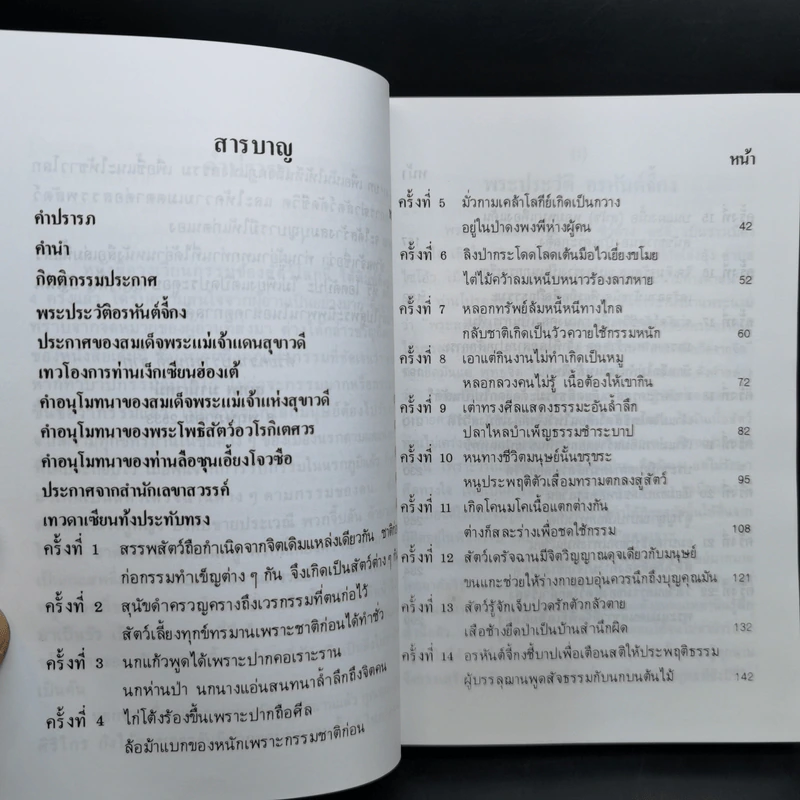 สารบาญ
คำปรารภ
คำนำ
กิตติกรรมประกาศ
พระประวัติอรหันต์จี้กง
ประกาศของสมเด็จพระแม่เจ้าแดนสุขาวดี
เทวโองการท่านเง็กเซียนฮ่องเต้
คำอนุโมทนาของสมเด็จพระแม่เจ้าแห่งสุขาวดี
คำอนุโมทนาของพระโพธิสัตว์อวโรกิเตศวร
คำอนุโมทนาของท่านลือซุนเอี้ยงโจวซือ
ประกาศจากสำนักเลขาสวรรค์
เทวดาเซียนทั้งประทับทรง
ครั้งที่ 1 สรรพสัตว์ถือกำเนิดจากจิตเดิมแหล่งเดียวกัน ชาติก่อ
ก่อกรรมทำเข็ญต่าง ๆ กัน จึงเกิดเป็นสัตว์ต่าง ๆ กัน
ครั้งที่ 2 สุนัขดำครวญครางถึงเวรกรรมที่ตนก่อไว้
สัตว์เลี้ยงทุกข์ทรมานเพราะชาติก่อนได้ทำชั่ว
ครั้งที่ 3 นกแก้วพูดได้เพราะปากคอเราะราน
นกห่านป่า นกนางแอ่นสนทนาล้ำลึกถึงจิตคน
ครั้งที่ 4 ไก่โต้งร้องขึ้นเพราะปากถือศีล
ล้อม้าแบกของหนักเพราะกรรมชาติก่อน
หน้า
ครั้งที่ 5 มั่วกามเคล้าโลกีย์เกิดเป็นกวาง
อยู่ในป่าดงพงพีห่างผู้คน 42
ครั้งที่ 6 ลิงป่ากระโดดโลดเต้นมือไวเยี่ยงขโมย
ไต่ไม้คว้าลมเหน็บหนาวร้องลาภหาย 52
ครั้งที่ 7 หลอกทรัพย์ล้มหนี้หนีทางไกล
กลับชาติเกิดเป็นวัวควายใช้กรรมหนัก 60
ครั้งที่ 8 เอาแต่กินงานไม่ทำเกิดเป็นหมู
หลอกลวงคนไม่รู้ เนื้อต้องให้เขากิน 72
ครั้งที่ 9 เต่าทรงศีลแสดงธรรมะอันล้ำลึก
ปลาไหลบำเพ็ญธรรมชำระบาป 82
ครั้งที่ 10 หนทางชีวิตมนุษย์นั้นขรุขระ
หนูประพฤติตัวเสื่อมทรามตกลงสู่สัตว์ 95
ครั้งที่ 11 เกิดโคนมโคเนื้อแตกต่างกัน
ต่างก็สละร่างเพื่อชดใช้กรรม 108
ครั้งที่ 12 สัตว์เดรัจฉานมีจิตวิญญาณดุจเดียวกับมนุษย์
ขนแกะช่วยให้ร่างกายอบอุ่นควรนึกถึงบุญคุณมัน 121
ครั้งที่ 13 สัตว์รู้จักเจ็บปวดรักตัวกลัวตาย
เสือช้างยึดป่าเป็นบ้านสำนึกผิด 132
ครั้งที่ 14 อรหันต์จี้กงชี้บาปเพื่อเตือนสติให้ประพฤติธรรม
ผู้บรรลุฌานพูดสัจธรรมกับนกบนต้นไม้ 142